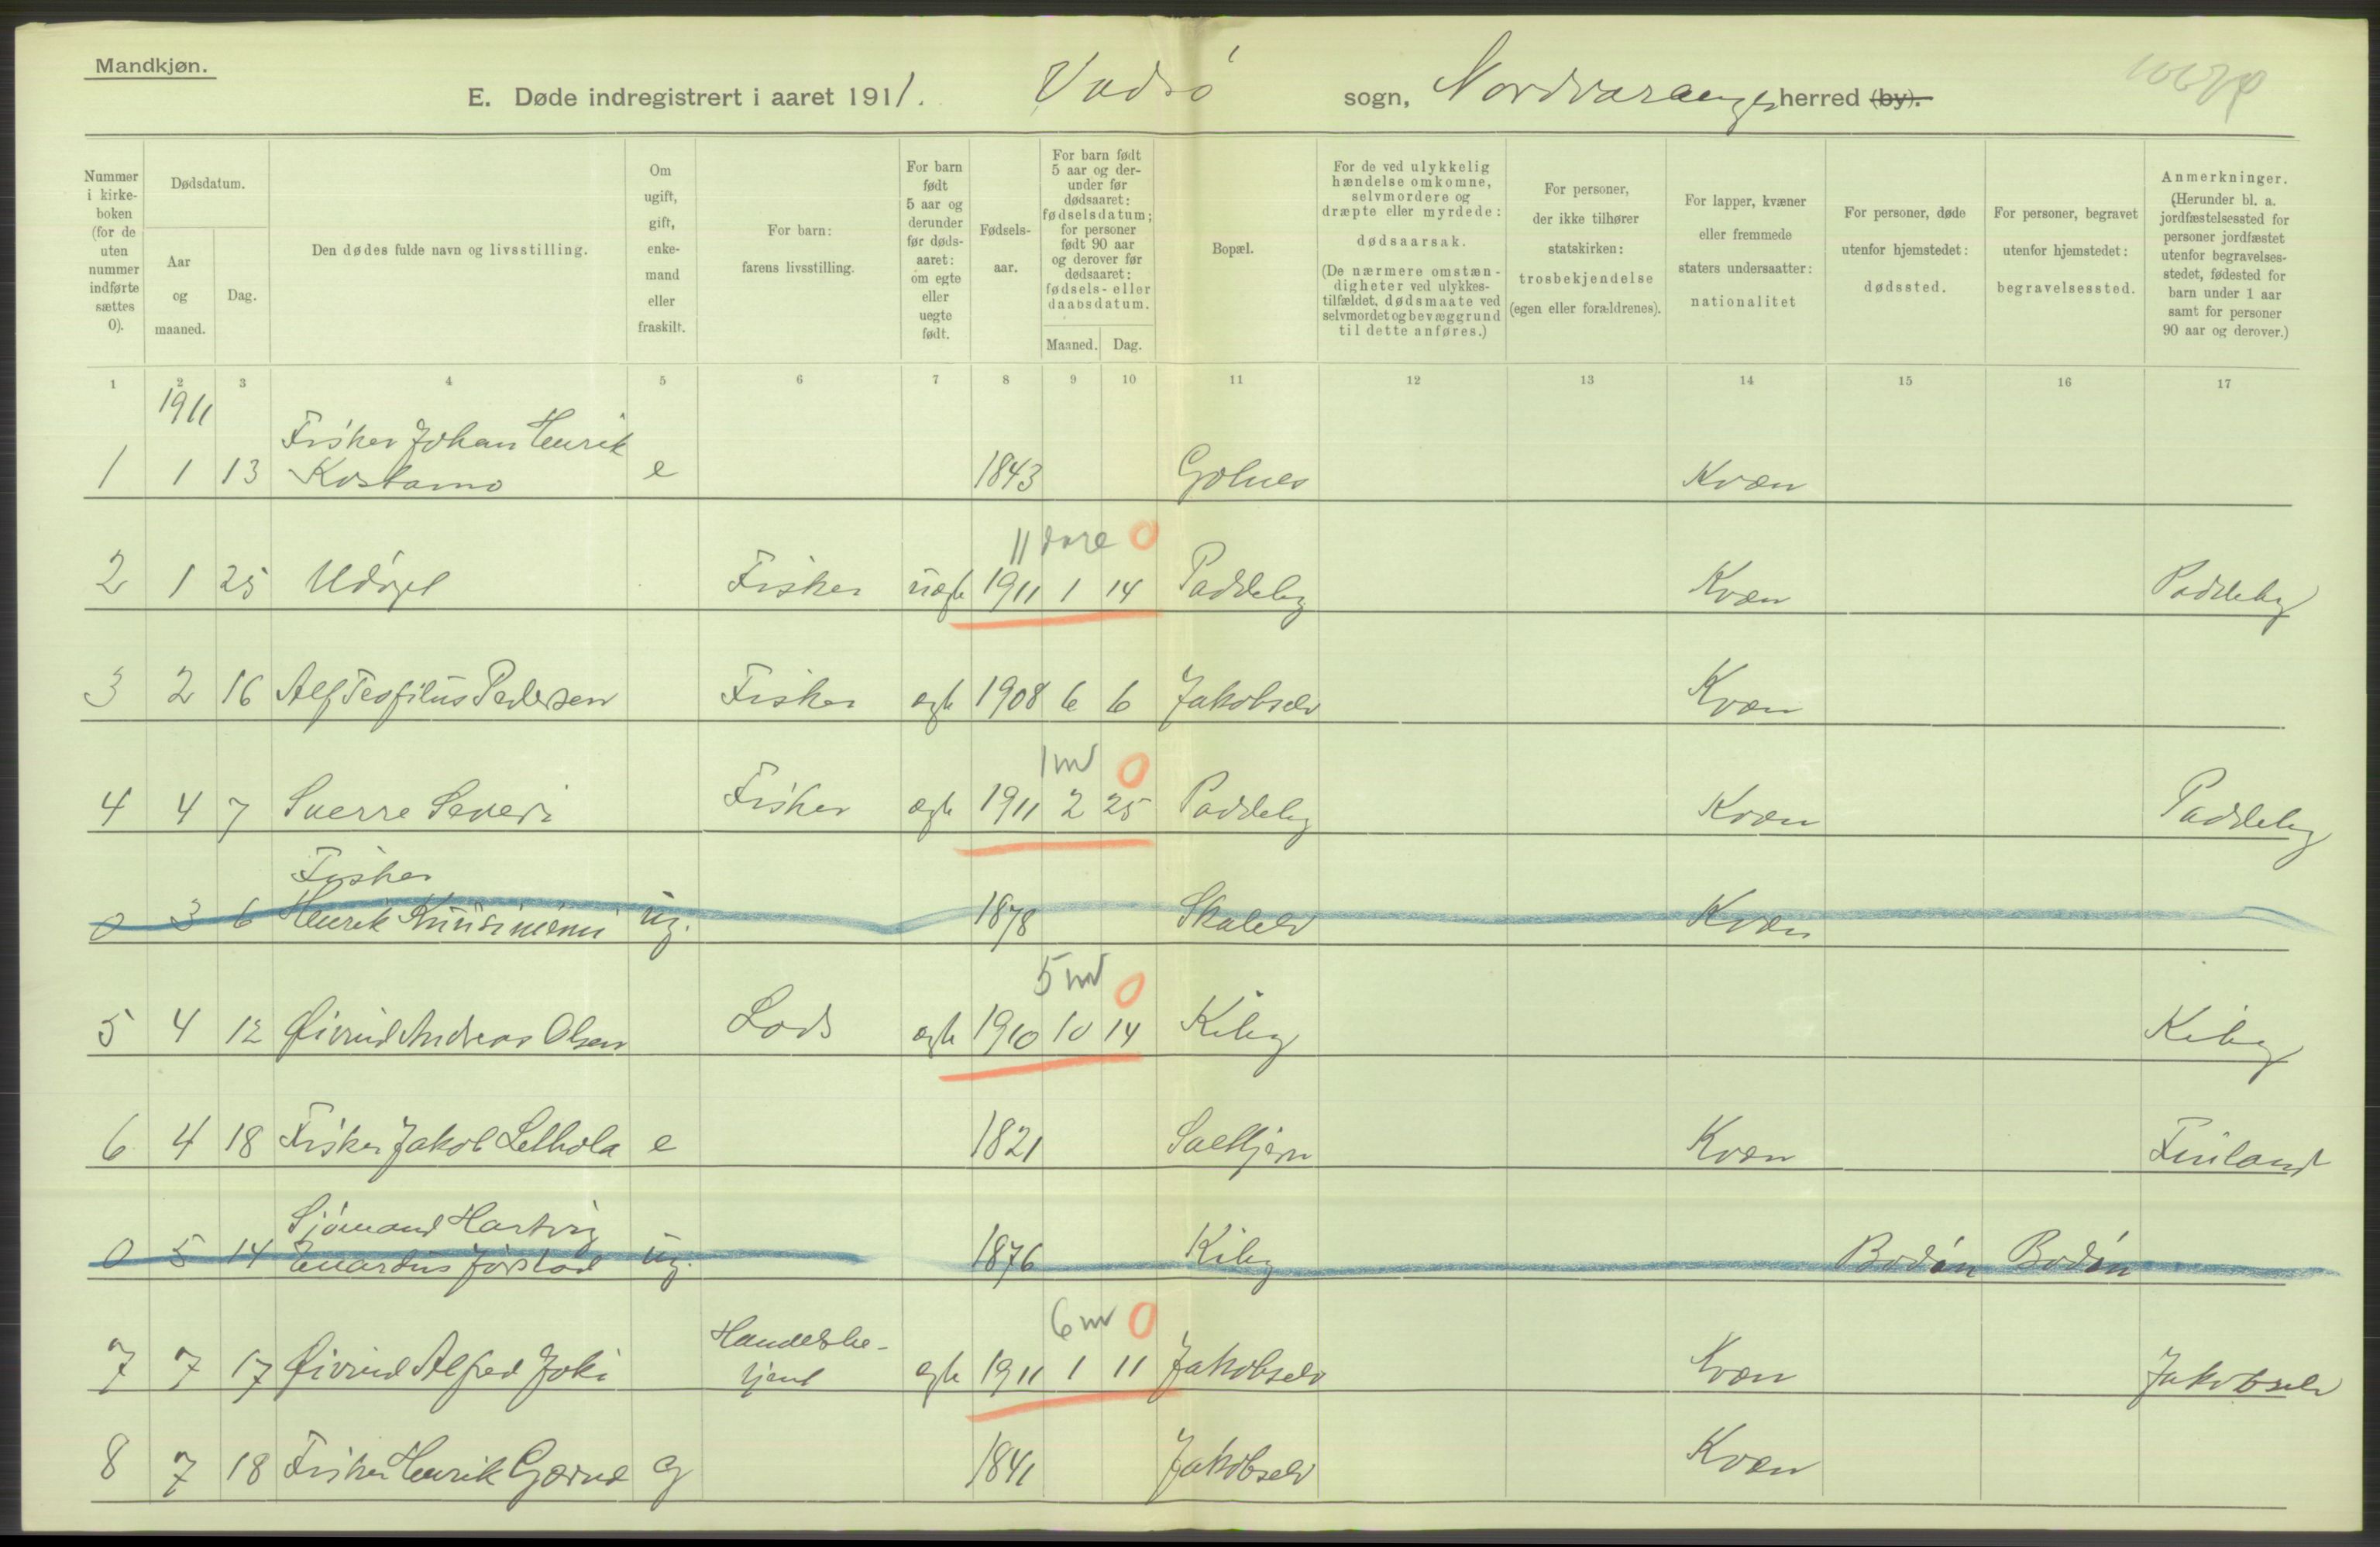 Mandkjøn.
E. Døde indregistrert i aaret 1911. Vadsø sogn, Nordvaranger herred (by).
Nummer i kirke-boken (for de uten nummer indførte sættes 0).
Dødsdatum.
Aar og maaned.
Dag.
Den dødes fulde navn og livsstilling.
Om ugift, gift, enke-mand eller fraskilt.
For barn: farens livsstilling.
For barn født 5 aar og derunder før døds-aaret: om egte eller uegte født.
Fødsels-aar.
For barn født 5 aar og der-under før dødsaaret: fødselsdatum; for personer født 90 aar og derover før dødsaaret: fødsels- eller daabsdatum.
Maaned.
Dag.
Bopæl.
For de ved ulykkelig hændelse omkomne, selvmordere og dræpte eller myrdede: dødsaarsak. (De nærmere omstæn-digheter ved ulykkes-tilfældet, dødsmaate ved selvmordet og bevæggrund til dette anføres.)
For personer, der ikke tilhører statskirken: trosbekjendelse (egen eller forældrenes).
For lapper, kvæner eller fremmede staters undersaatter: nationalitet
For personer, døde utenfor hjemstedet: dødssted.
For personer, begravet utenfor hjemstedet: begravelsessted.
Anmerkninger. (Herunder bl. a. jordfæstelsessted for personer jordfæstet utenfor begravelses-stedet, fødested for barn under 1 aar samt for personer 90 aar og derover.)
1 2 3 4 5 6 7 8 9 10 11 12 13 14 15 16 17
1911
Fisker Johan Henrik
1 1 13 Kostamo e 1843 Golnes Kvæn
11 0
2 1 25 Udøpt Fisker uegte 1911 1 14 Paddeby Kvæn Paddeby
3 2 16 Alf Teofilus Pedersen Fisker egte 1908 6 6 Jakobselv Kvæn
1 m 0
4 4 7 Sverre Severi Fisker egte 1911 2 25 Paddeby Kvæn Paddeby
Fisker
0 3 6 Henrik ug. 1878 Skalelv Kvæn
5 m 0
5 4 12 Øivind Andreas Olsen Lods egte 1910 10 14 Kiby Kiby
6 4 18 Fisker Jakob Lethola e 1821 Kvæn Finland
Sjømand Hartvig
0 5 14 Evardus ug. 1876 Kiby Bodin Bodin
6 m 0
Handelsbe-
7 7 17 Øivind Alfred Joki tjent egte 1911 1 11 Jakobselv Kvæn Jakobselv
8 7 18 Fisker Henrik g 1841 Jakobselv Kvæn